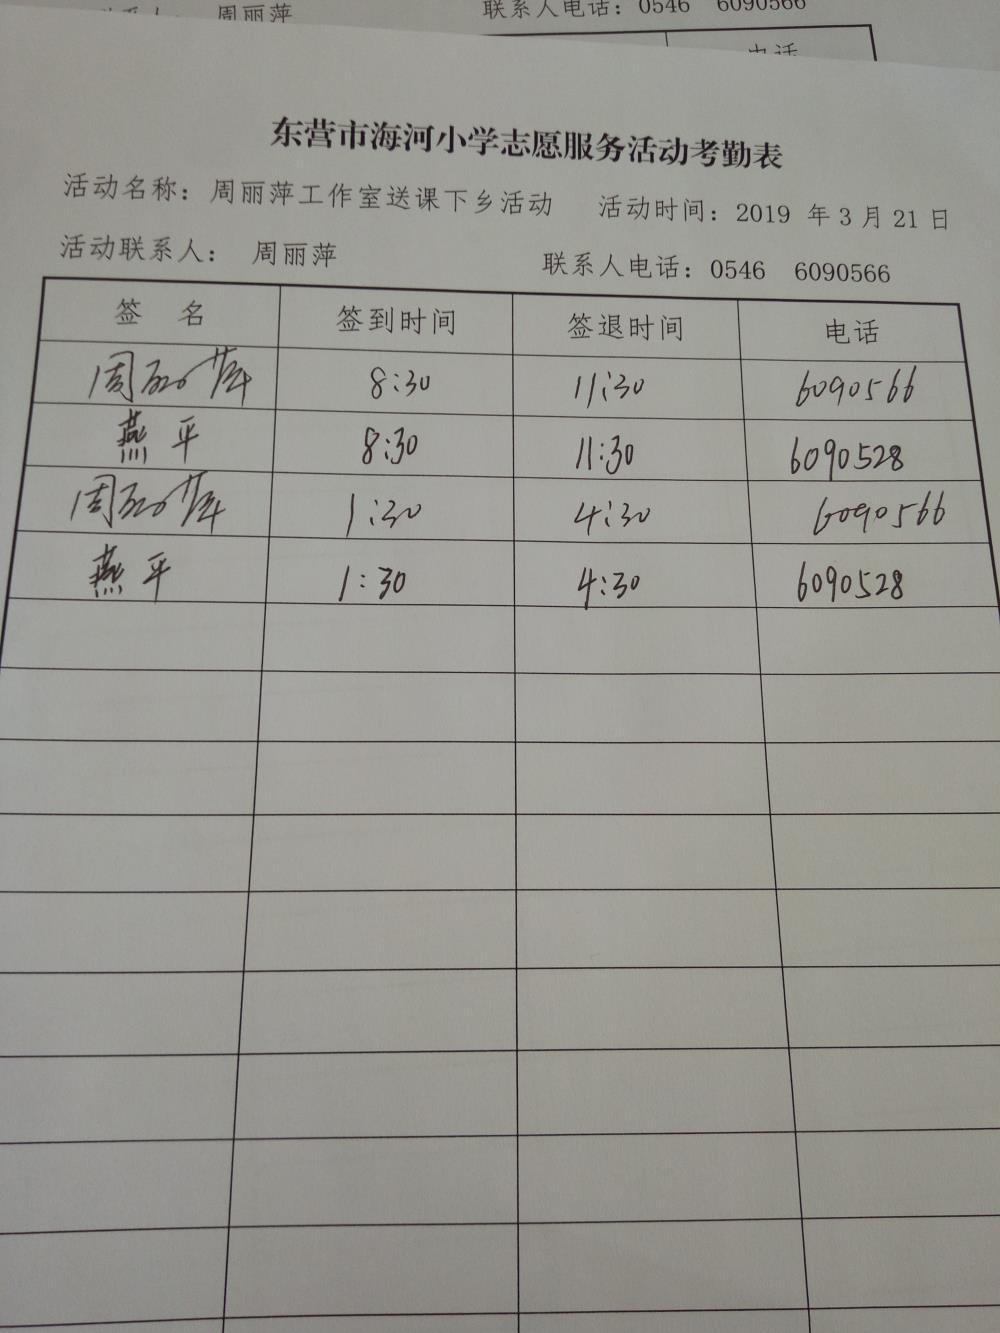 周丽萍 联系人电话：0546 6090566
电话
东营市海河小学志愿服务活动考勤表
活动名称：周丽萍工作室送课下乡活动 活动时间：2019 年 3 月 21 日
活动联系人： 周丽萍 联系人电话：0546 6090566
签 名 签到时间 签退时间 电话
周丽萍 8:30 11:30 6090566
燕平 8:30 11:30 6090528
周丽萍 1:30 4:30 6090566
燕平 1:30 4:30 6090528